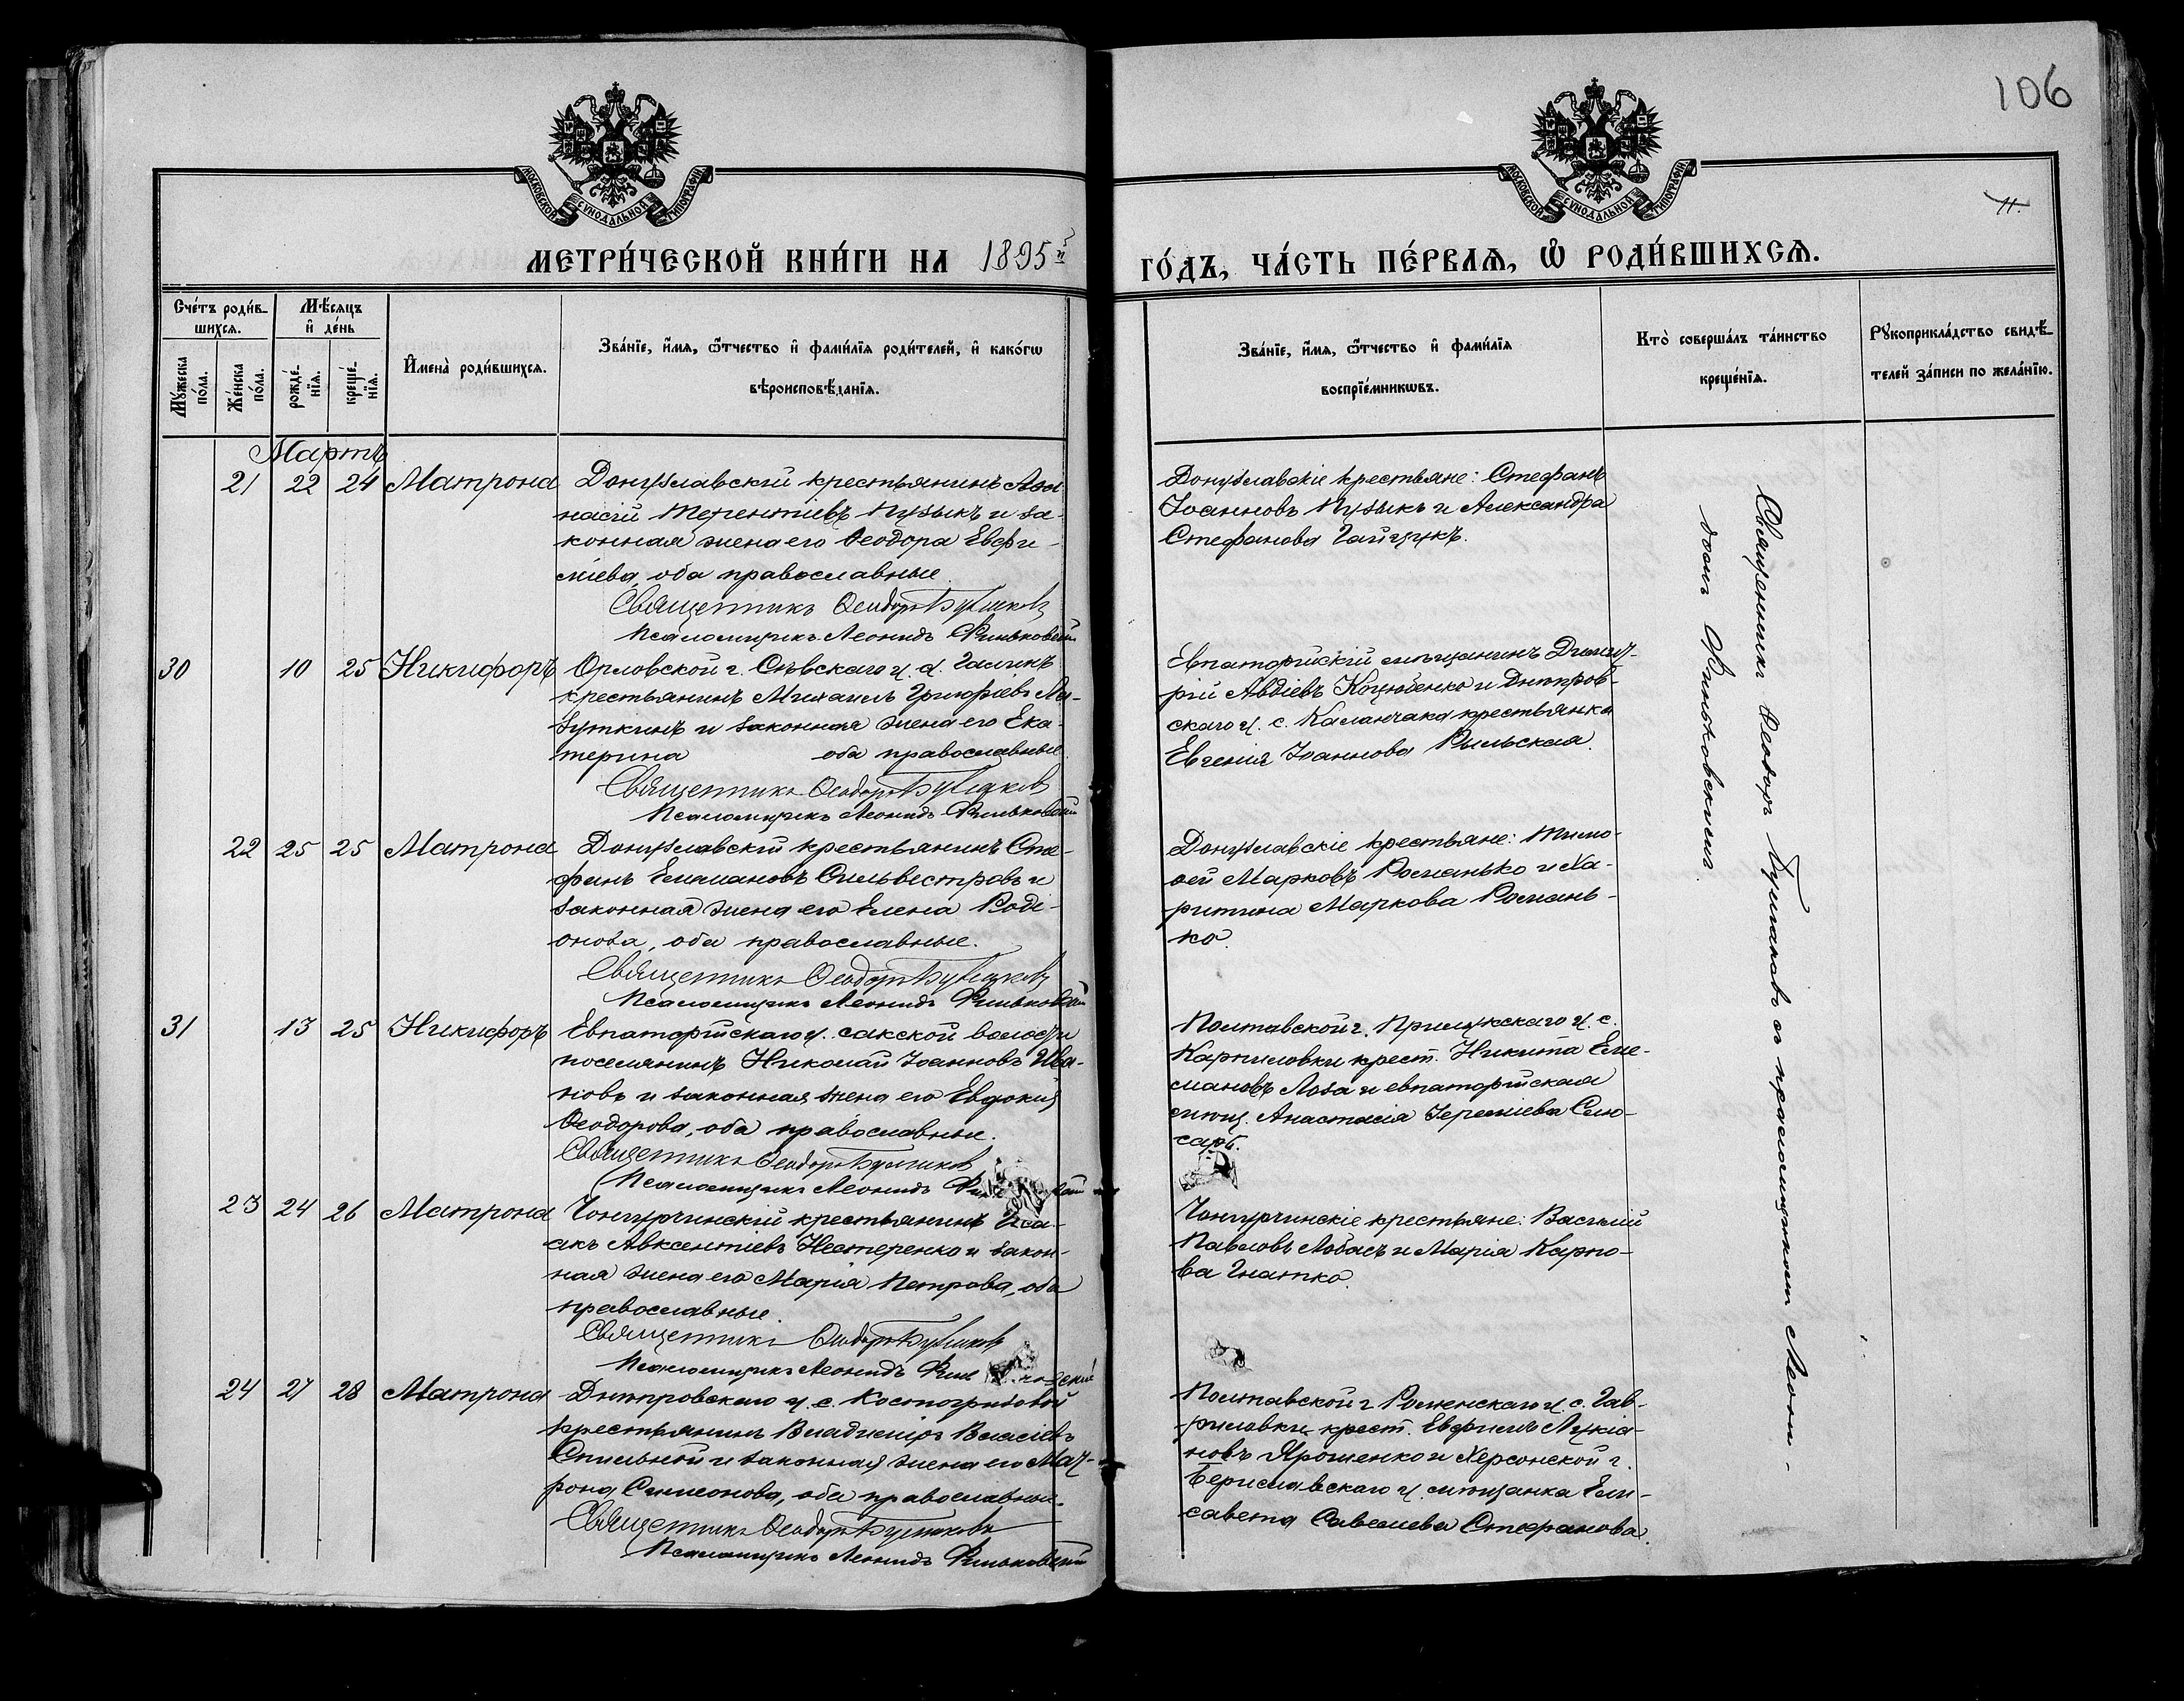 106
11.
МОСКОВСКОЙ СѴНОДАЛЬНОЙ ТИПОГРАФІИ
МОСКОВСКОЙ СѴНОДАЛЬНОЙ ТИПОГРАФІИ
МЕТРИ́ЧЕСКОЙ КНИ́ГИ НА 1895й
ГО́ДЪ, ЧА́СТЬ ПЕ́РВАЯ, Ѡ РОДИ́ВШИХСЯ.
Сче́тъ роди́вшихся.
Му́жеска по́ла.
Же́нска по́ла.
Мѣ́сяцъ и де́нь
рожде́нїя.
креще́нїя.
Имена̀ роди́вшихся.
Зва́нїе, и́мя, ѻ́тчество и фами́лїя роди́телей, и како́гѡ
вѣроисповѣ́данїя.
Зва́нїе, и́мя, ѻ́тчество и фами́лїя
воспрїе́мникѡвъ.
Кто̀ соверша́лъ та́инство
креще́нїя.
Рꙋкоприкла́дство свидѣ́-
телей за́писи по жела́нїю.
Мартъ
21 22 24 Матрона Донузлавскій крестьянинъ Афа-
насій Терентіевъ Пузыкъ и за-
конная жена его Ѳеодора Евфи-
міева, оба православные
Священникъ Ѳеодоръ Бушмаковъ
Псаломщикъ Леонидъ Финьковскій
Донузлавскіе крестьяне: Стефанъ
Іоанновъ Пузыкъ и Александра
Стефанова Гайщукъ.
30 10 25 Никифоръ Орловской г. Сѣвскаго у. д.
крестьянинъ Михаилъ
и законная жена его Ека-
терина оба православные
Священникъ Ѳеодоръ Бушмаковъ
Псаломщикъ Леонидъ Финьковскій
Евпаторійскій мѣщанинъ Димит-
рій Авдіевъ Коцюбенко и Днѣпров-
скаго у. с. Каланчака крестьянка
Евгенія Іоаннова Рыльская.
22 25 25 Матрона Донузлавскій крестьянинъ Сте-
фанъ Емелиановъ Сильвестровъ и
законная жена его Елена Роди-
онова, оба православные.
Священникъ Ѳеодоръ Бушмаковъ
Псаломщикъ Леонидъ Финьковскій
Донузлавскіе крестьяне: Тимо-
ѳей Марковъ Романько и Ха-
ритина Маркова Романь-
ко.
31 13 25 Никифоръ Евпаторійскаго у. сакской волости
поселянинъ Николай Іоанновъ Ива-
новъ и законная жена его Евдокія
Ѳеодорова, оба православные.
Священникъ Ѳеодоръ Бушмаковъ
Псаломщикъ Леонидъ
Полтавской г. Прилукскаго у. с.
Карпиловки крест. Никита Еме-
лиановъ Лоза и евпаторійская
мѣщ. Анастасія Іереміева Слю-
сарь.
23 24 26 Матрона Чонгурчинскій крестьянинъ Иса-
акъ Авксентіевъ Нестеренко и закон-
ная жена его Марія Петрова, оба
православные.
Священникъ Ѳеодоръ Бушмаковъ
Псаломщикъ Леонидъ
Чонгурчинскіе крестьяне: Василій
Павловъ Лобасъ и Марія Карпо-
ва Гнатко.
24 27 28 Матрона Днѣпровскаго у. с. Костогрызовой
крестьянинъ Владиміръ Власіевъ
и законная жена его Мат-
рона Симеонова, оба православные.
Священникъ Ѳеодоръ Бушмаковъ
Псаломщикъ Леонидъ Финьковскій
Полтавской г. Роменскаго у. с. Гав-
риловки крест. Евфимъ Лукіа-
новъ Ярошенко и Херсонской г.
Бериславскаго у. мѣщанка Ели-
савета Савелиева Стефанова.
Священникъ Ѳеодоръ Бушмаковъ съ псаломщикомъ Леони-
домъ Финьковскимъ.